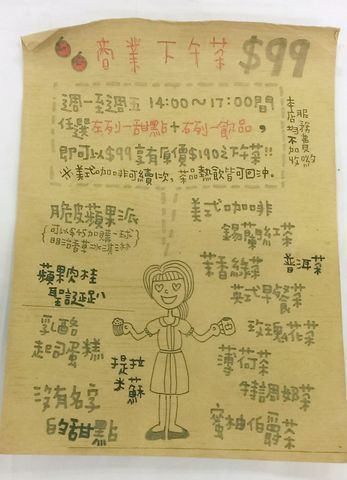 商業下午茶 $99
週一至週五 14:00～17:00間
任選左列一甜點+右列一飲品，
即可以$99享有原價$190之下午茶!!
※美式咖啡可續1次，茶品熱飲皆可回沖.
本店均不加收
服務費喲
脆皮蘋果派
蘋果肉桂
聖誕趴趴
乳酪
起司蛋糕
沒有名字
的甜點
提拉
米蘇
美式咖啡
錫蘭紅茶
茉香綠茶
普洱茶
英式早餐茶
玫瑰花茶
薄荷茶
特調奶茶
蜜柚伯爵茶